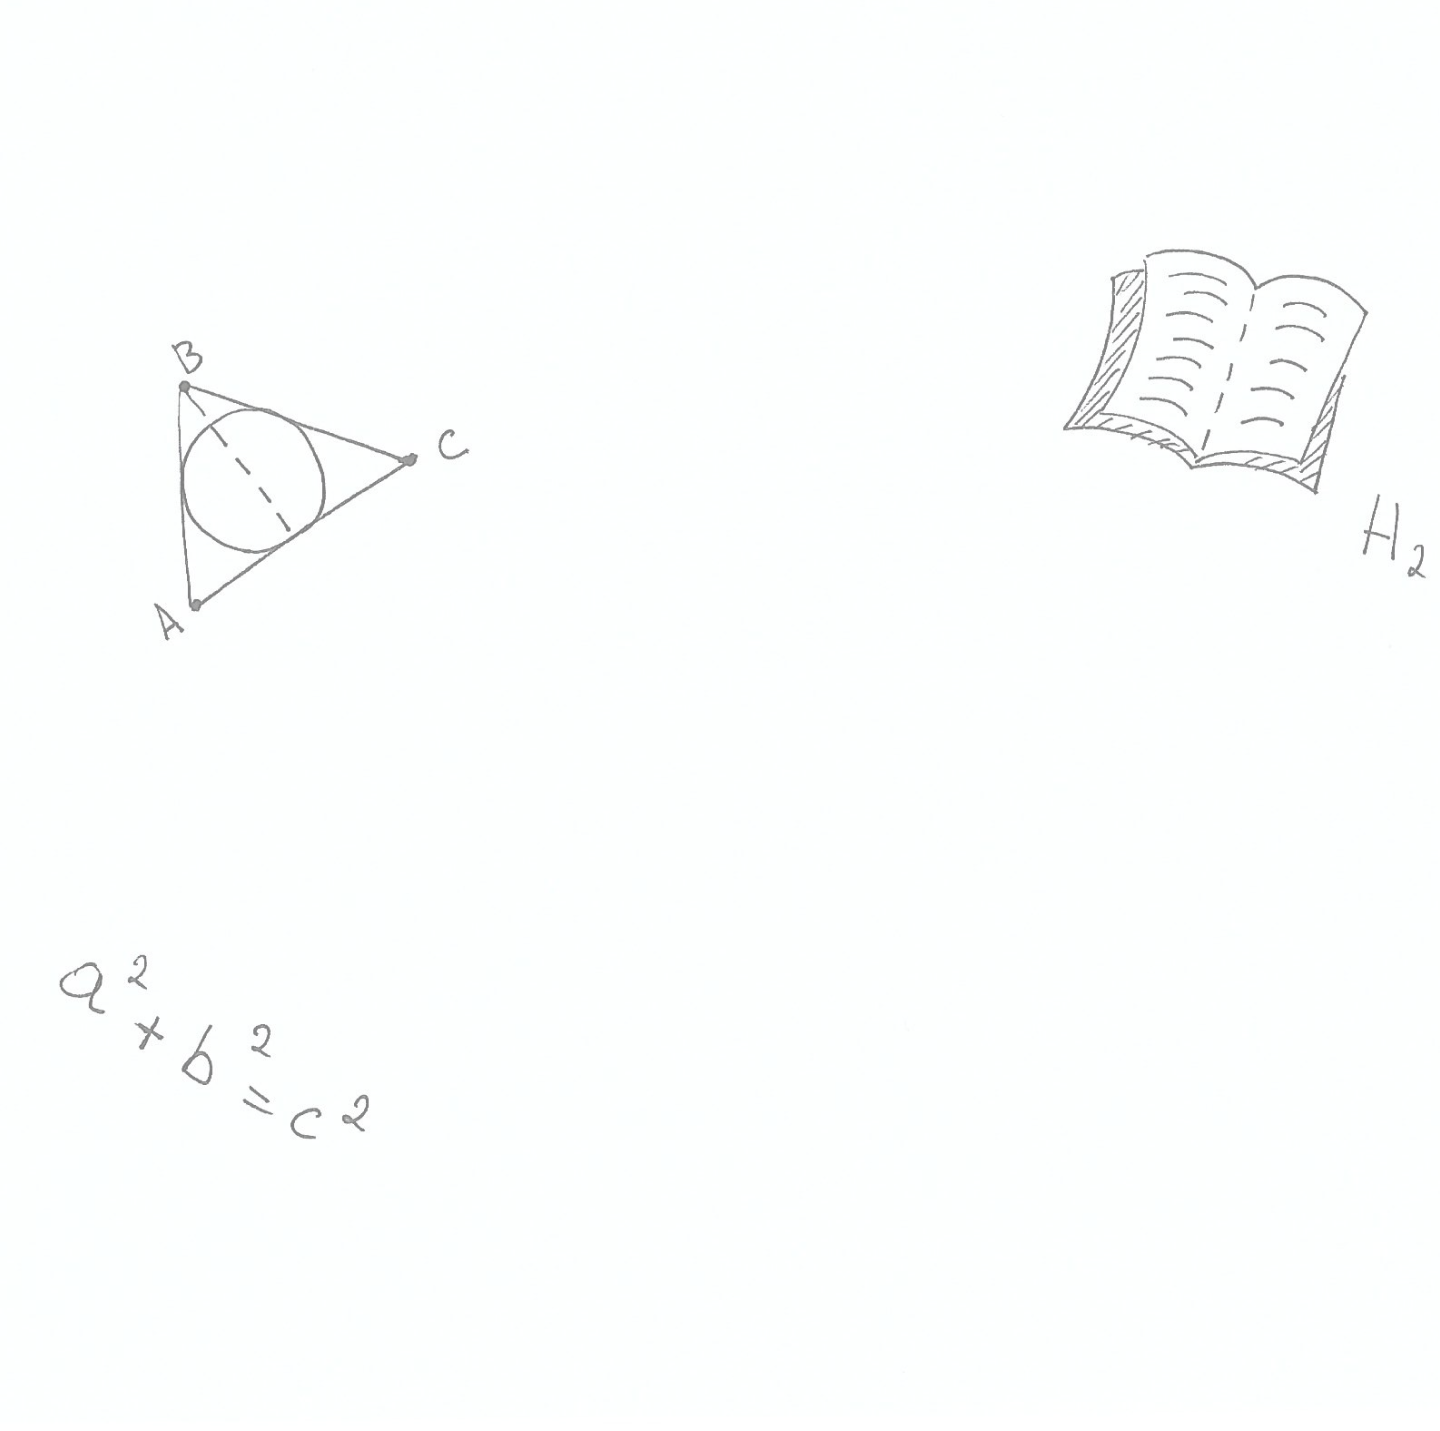 B
C
A
H₂
a² + b² = c²